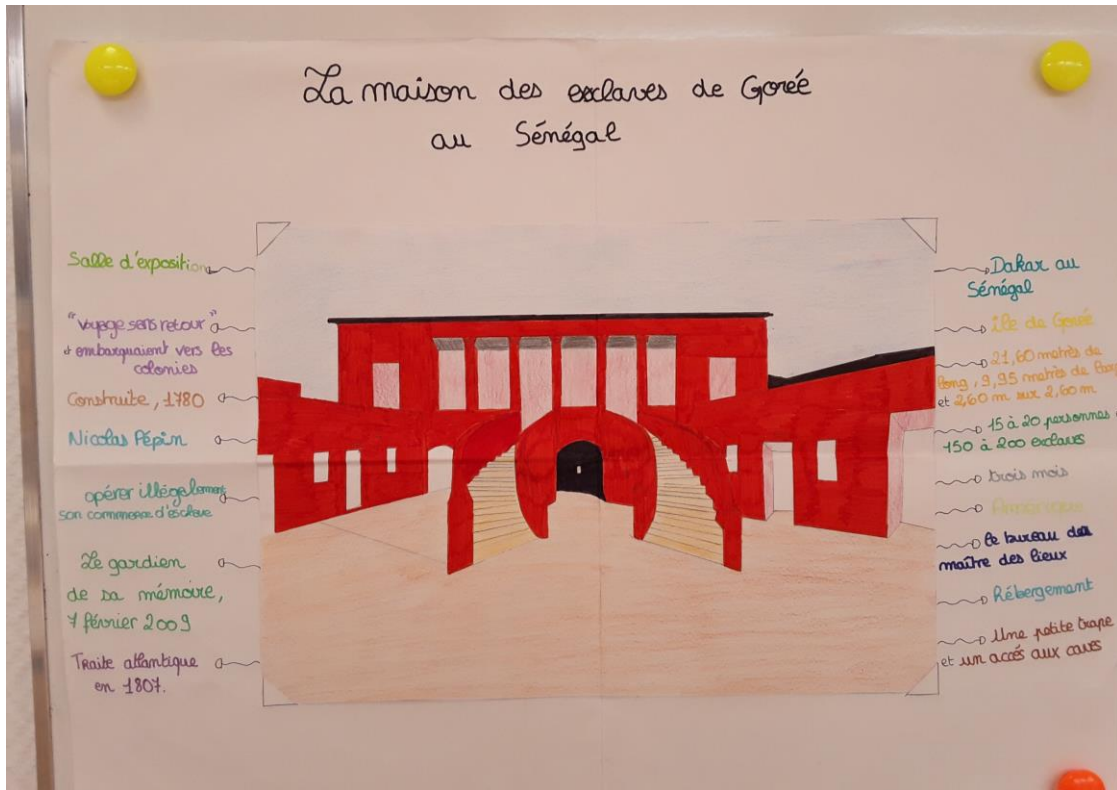 La maison des esclaves de Gorée
au Sénégal
Salle d'exposition
"Voyage sens retour"
et embarquaient vers les
colonies
Construite, 1780
Nicolas Pépin
opérer illégalement
son commerce d'esclave
Le gardien
de sa mémoire,
7 février 2009
Traite atlantique
en 1807.
Dakar au
Sénégal
île de Gorée
21,60 metrès de
long, 9,95 metrès de
et 2,60 m sur 2,60 m
15 à 20 personnes
150 à 200 esclaves
trois mois
Amérique
le bureau
maître des lieux
Hébergement
Une petite trape
et un accés aux caves